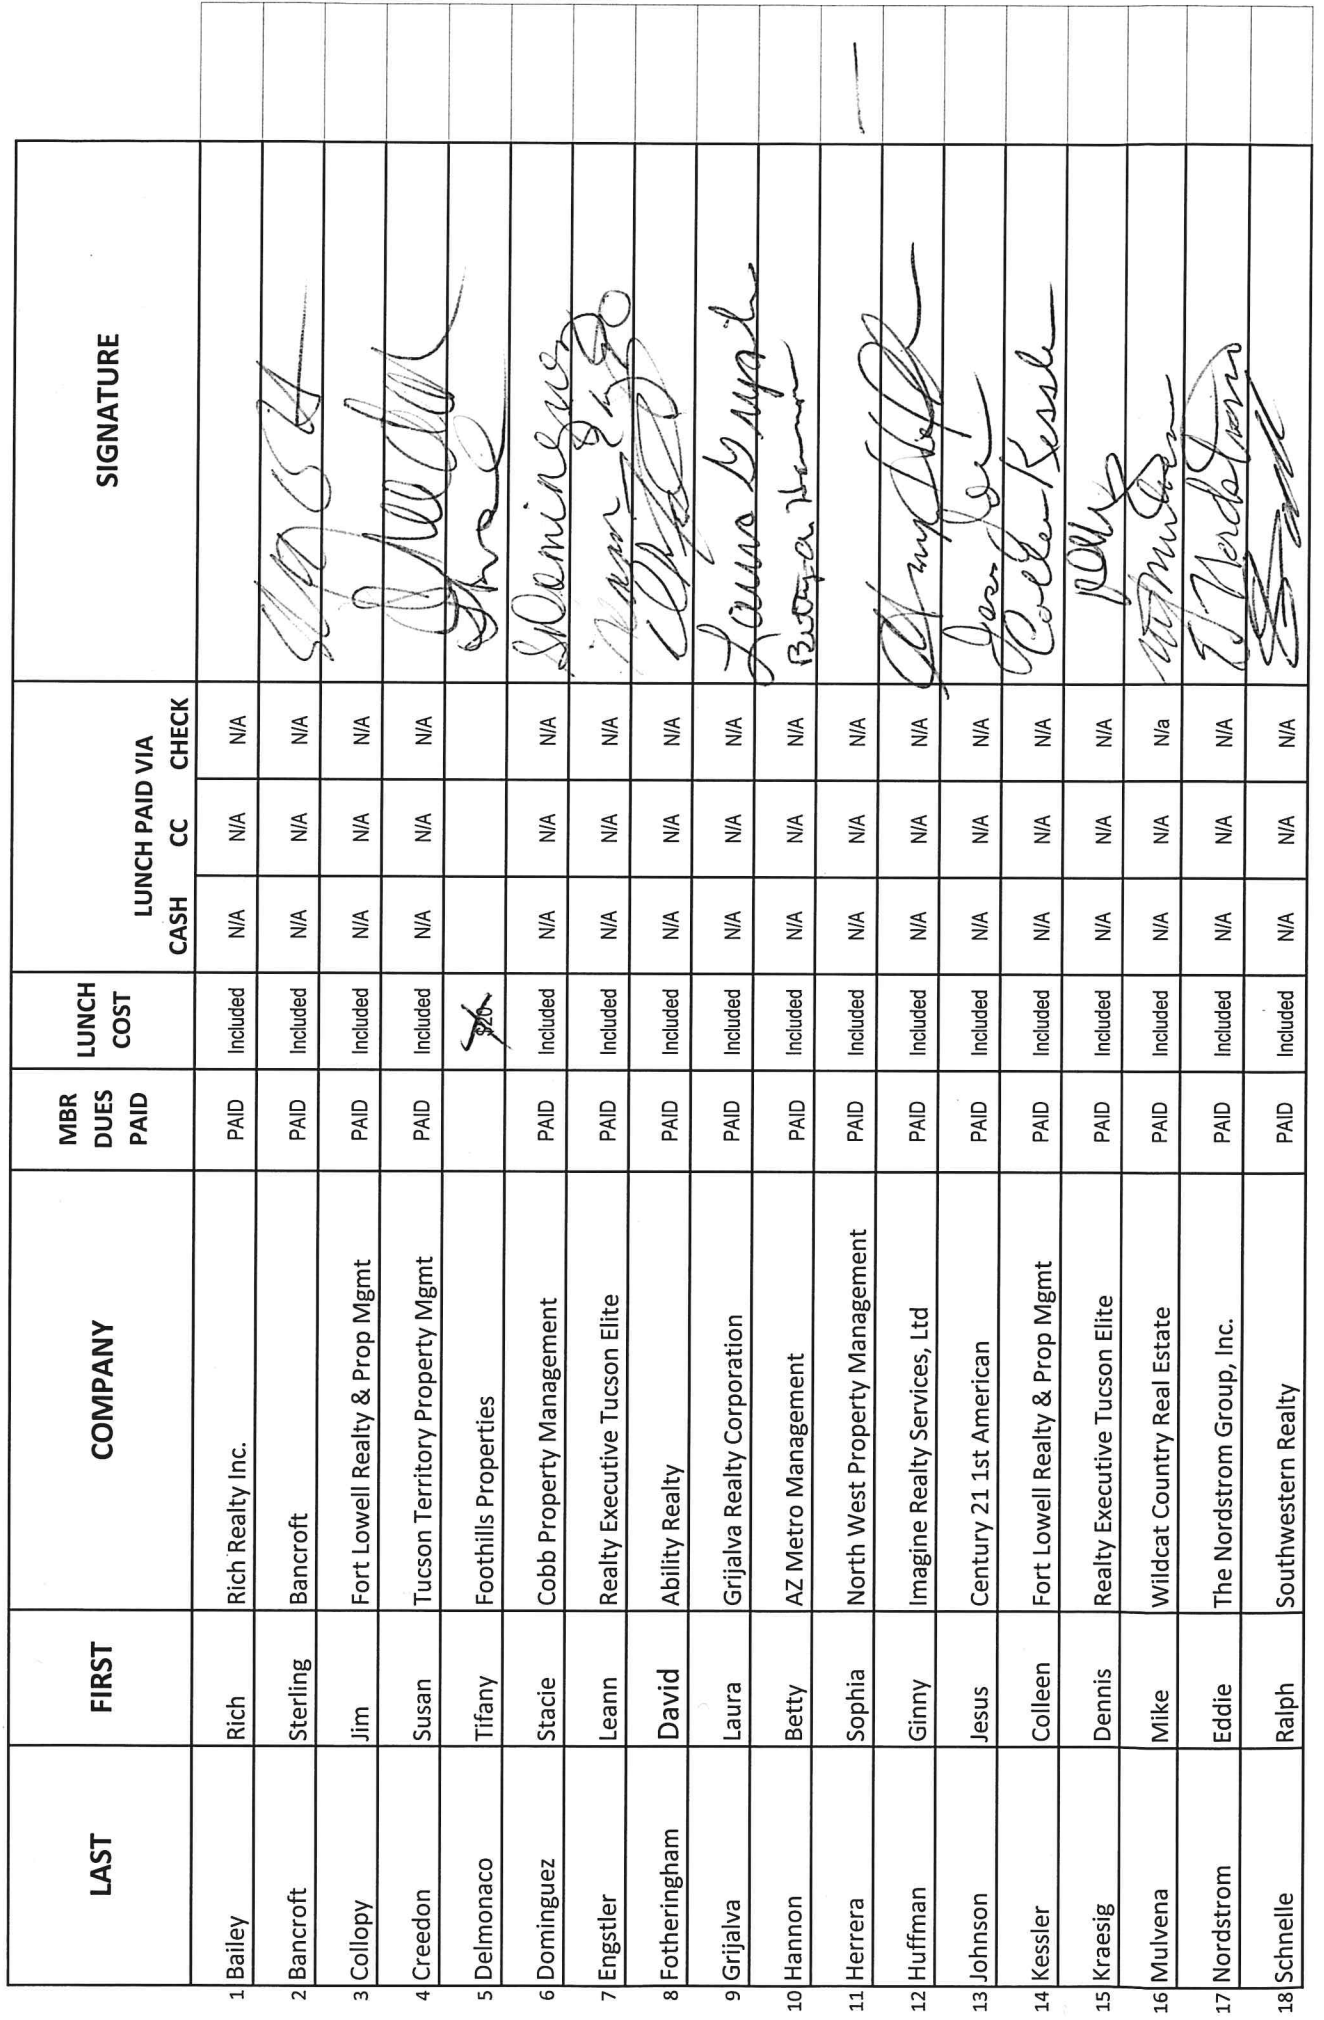 LAST FIRST COMPANY MBR DUES PAID LUNCH COST LUNCH PAID VIA CASH CC CHECK SIGNATURE
1 Bailey Rich Rich Realty Inc. PAID Included N/A N/A N/A
2 Bancroft Sterling Bancroft PAID Included N/A N/A N/A
3 Collopy Jim Fort Lowell Realty & Prop Mgmt PAID Included N/A N/A N/A
4 Creedon Susan Tucson Territory Property Mgmt PAID Included N/A N/A N/A
5 Delmonaco Tifany Foothills Properties $20
6 Dominguez Stacie Cobb Property Management PAID Included N/A N/A N/A
7 Engstler Leann Realty Executive Tucson Elite PAID Included N/A N/A N/A
8 Fotheringham David Ability Realty PAID Included N/A N/A N/A
9 Grijalva Laura Grijalva Realty Corporation PAID Included N/A N/A N/A Laura Grijalva
10 Hannon Betty AZ Metro Management PAID Included N/A N/A N/A
11 Herrera Sophia North West Property Management PAID Included N/A N/A N/A —
12 Huffman Ginny Imagine Realty Services, Ltd PAID Included N/A N/A N/A
13 Johnson Jesus Century 21 1st American PAID Included N/A N/A N/A
14 Kessler Colleen Fort Lowell Realty & Prop Mgmt PAID Included N/A N/A N/A Colleen Kessler
15 Kraesig Dennis Realty Executive Tucson Elite PAID Included N/A N/A N/A
16 Mulvena Mike Wildcat Country Real Estate PAID Included N/A N/A N/a
17 Nordstrom Eddie The Nordstrom Group, Inc. PAID Included N/A N/A N/A
18 Schnelle Ralph Southwestern Realty PAID Included N/A N/A N/A